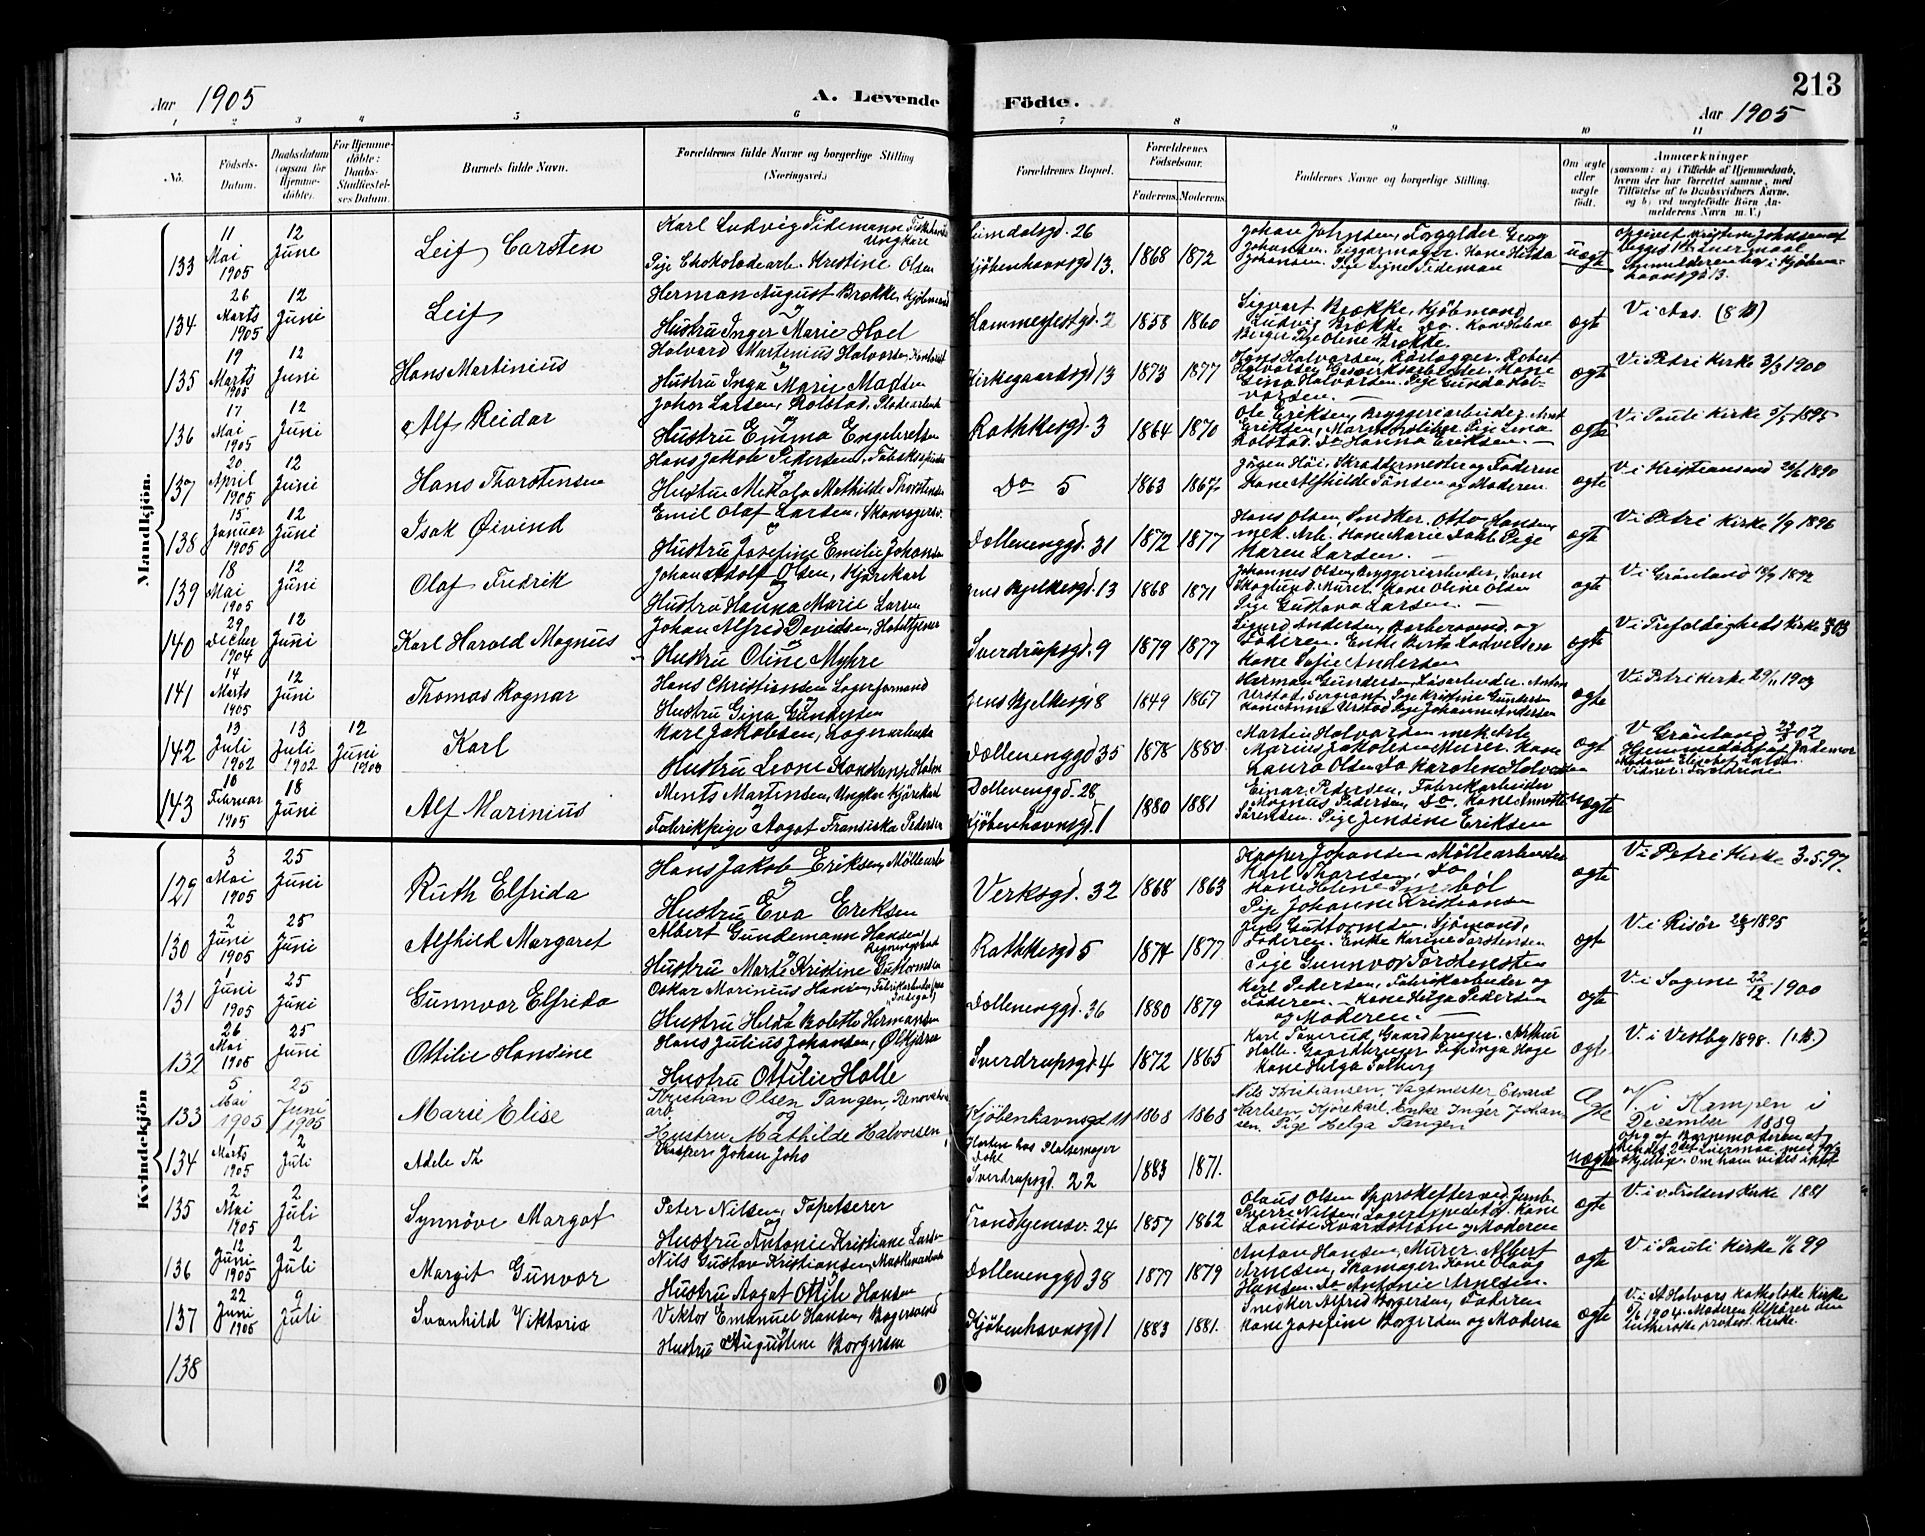 Aar 1905
A. Levende Födte.
213
Aar 1905
1 2 3 4 5 6 7 8 9 10 11
No.
Födsels-Datum.
Daabsdatum (ogsaa for Hjemme-döbte).
For Hjemme-döbte: Daabs-Stadfæstel-ses Datum.
Barnets fulde Navn.
Forældrenes fulde Navne og borgerlige Stilling
(Næringsvei.)
Forældrenes Bopæl.
Forældrenes Födselsaar.
Faderens. Moderens.
Faddernes Navne og borgerlige Stilling.
Om ægte eller uægte födt.
Anmærkninger
(saasom: a) i Tilfælde af Hjemmedaab,
hvem der har forrettet samme, med
Tilföielse af to Daabsvidners Navne,
og b) ved uægtefödte Börn An-
melderens Navn m. V.)
Mandkjön.
133 11 Mai 1905 12 June
Leif Carsten
Karl Ludvig Tidemann
Ungkarl
Pige Chokoladearb. Kristine Olsen
Lumdalsgd. 26
Kjøbenhavnsgd 13.
1868 1872
Johan Johnsen, Forgylder Georg
Johansen. Cigarmager. Kone Hilda
Johansen. Pige Signe Tideman
uægte
134 26 Marts 1905 12 Juni
Leif
Herman August Brække, Kjøbmand
og
Hustru Inger Marie Hoel
Hammerfestgd. 2
1858 1860
Sigvart Brække, Kjøbmand
Ludvig Brække do. Kone Helene
Berger Pige Oline Brække.
ægte
V i Aas. (8 B)
135 19 Marts 1905 12 Juni
Hans Martinius
Halvard Martinius Halvorsen, Kontorist
og
Hustru Inga Marie Madsen
Kirkegaardsgd 13
1873 1877
Hans Halvorsen, Rørlægger. Robert
Halvorsen Gasverksarbeider. Kone
Gina Halvorsen. Pige Gunda Hal-
vorsen.
ægte
V i Petri Kirke 3/3 1900
136 17 Mai 1905 12 Juni
Alf Reidar
Johan Larsen, Rolstad. Pladearbeid
og
Hustru Emma Engebretsen
Rathkesgd. 3
1864 1870
Ole Eriksen, Bryggeriarbeider.
Eriksen, Marmorsliber. Pige Lina
Rolstad. Do Hanna Eriksen.
ægte
V i Pauli Kirke 5/5 1895
137 20 April 1905 12 Juni
Hans Thorstensen
Hans Jakob Pedersen,
og
Hustru Mikala Mathilde Thorstensen
Do 5
1863 1867
Jörgen Höi, Skræddermester og Faderen
Kone Alfhilde Jansen og Moderen.
ægte
V i Kristiansand 26/6 1890
138 15 Januar 1905 12 Juni
Isak Øivind
Emil Olaf Larsen, Skomagersv.
og
Hustru Josefine Emilie Johansen
Dælenenggd. 31
1872 1877
Hans Olsen, Snedker. Otto Hansen,
mek. Arb. Kone Marie Dahl. Pige
Maren Larsen.
ægte
V i Petri Kirke 1/9 1896
139 18 Mai 1905 12 Juni
Olaf Fredrik
Johan Adolf Olsen, Kjørekarl
og
Hustru Hanna Marie Larsen
Jens Bjelkesgd. 13
1868 1871
Johannes Olsen, Bryggeriarbeider, Sven
Skoglund, Murer. Kone Oline Olsen
Pige Gustava Larsen.
ægte
V i Grønland 18/9 1892
140 29 Decbr 1904 12 Juni
Karl Harald Magnus
Johan Alfred Davidsen, Hoteltjener
og
Hustru Oline Myhre
Sverdrupsgd. 9
1879 1877
Sigurd Andersen, Barbersvend og
Faderen. Enke Berta Lodvelsen
Kone Sofie Andersen
ægte
V i Trefoldigheds Kirke
141 14 Marts 1905 12 Juni
Thomas Ragnar
Hans Christiansen Lagerformand
og
Hustru Gina Gundersen
Jens Bjelkesg 8
1849 1867
Herman Gundersen, Løsarbeider. Anton
Urstad, Sergeant, Pige Kristine Gundersen
Kone Anna Urstad Pige Johanne Andersen
ægte
V i Petri Kirke 29/11 1903
142 13 Juli 1902 13 Juli 1902 12 Juni 1905
Karl
Karl Jakobsen, Lagerarbeider
og
Hustru Leoni Konstanse Halvorsen
Dælenenggd 35
1878 1880
Martin Halvorsen mek Arb.
Marius Jakobsen Murer. Kone
Laura Olsen Do Karoline Halvorsen
ægte
V Grønland 23/3 02
Hjemmedøbt af Jordemor
Madam Elisabet Larsen.
Vidner: Forældrene
143 10 Februar 1905 18 Juni
Alf Marinius
Ments Martinsen, Ungkar Kjørekarl
og
Fabrikpige Aagot Fransiska Pedersen
Dælenenggd. 28
Kjøbenhavnsgd. 1
1880 1881
Einar Pedersen, Fabrikarbeider
Magnus Pedersen, Do. Kone Annette
Sörensen. Pige Jensine Eriksen
uægte
Kvindekjön
129 3 Mai 1905 25 Juni
Ruth Elfrida
Hans Jakob Eriksen, Møllearb
og
Hustru Eva Eriksen
Verksgd. 32
1868 1863
Kasper Johansen, Møllearbeider
Karl Thoresen, Do
Kone Helene Imebøl
Pige Johanne Kristiansen
ægte
V i Petri Kirke 3.5.97.
130 2 Juni 1905 25 Juni
Alfhild Margaret
Albert Gundemann Hansen
og
Hustru Marte Kristine Guttormsen
Rathkesgd 5
1874 1877
Jens Guttormsen. Sjömand,
Faderen. Enke Karine Torstensen
Pige Gunnvor Torstensen
ægte
V i Risør 26/3 1895
131 1 Juni 1905 25 Juni
Gunnvor Elfrida
Oskar Marinius Hansen, Fabrikarbeider
Hustru Hilda Bolette Hermansen
Dælenenggd. 36
1880 1879
Karl Pedersen, Fabrikarbeider og
Faderen. Kone Helga Pedersen
og Moderen.
ægte
V i Sagene 22/12 1900
132 26 Mai 1905 25 Juni
Ottilie Hansine
Hans Julius Johansen, Ølkjører
og
Hustru Ottilie Holte
Sverdrupsgd. 4
1872 1865
Karl Taverud, Gaardbruger. Arthur
Holte. Gaardbruger Pige Inga Hage
Kone Helga Solberg
ægte
V. i Vestby 1898. (1 B.)
133 5 Mai 1905 25 Juni 1905
Marie Elise
Kristian Olsen Tangen, Renovations
arb. og
Hustru Mathilde Halvorsen
Kjøbenhavnsgd 11
1868 1868
Nils Kristiansen, Vagtmester Edvard
Karlsen, Kjørekarl, Enke Inger Johan
sen, Pige Helga Tangen
Ægte
V. i Kampen i
December 1889
134 1 Marts 1905 2 Juli
Adele Th
Kasper Johan Johs
Sverdrupsgd. 22
1883 1871.
uægte
135 2 Mai 1905 2 Juli
Synnöve Margot
Peter Nilsen, Tapetserer
og
Hustru Antonie Kristiane Larsen
Trondhjemsv. 24
1857 1862
Olaus Olsen Sporskifter ved Jernb.
Sverre Nilsen, Lagerexpeditør, Kone
Louise Kvarnstrøm og Moderen
ægte
V. i v. Frelsers Kirke 1881
136 12 Juni 1905 2 Juli
Margit Gunvor
Nils Gustav Kristiansen, Maskinarbeider
og
Hustru Aagot Otilie Hansen
Dælenenggd 38
1877 1879
Anton Hansen, Murer. Albert
Arnesen, Skomager. Kone Olaug
Hansen. Do Antonie Arnesen.
ægte
V i Pauli Kirke 11/6 99
137 22 Juni 1905 9 Juli
Svanhild Viktoria
Viktor Emanuel Hansen, Bagersvend
og
Hustru Augustene Borgersen
Kjøbenhavnsgd 1
1883 1881.
Snedker Alfred Borgersen, Faderen
Kone Josefine Borgersen og Moderen
ægte
V. i St Halvors katholske Kirke
1904. Moderen tilhører den
lutherske protest. Kirke.
138